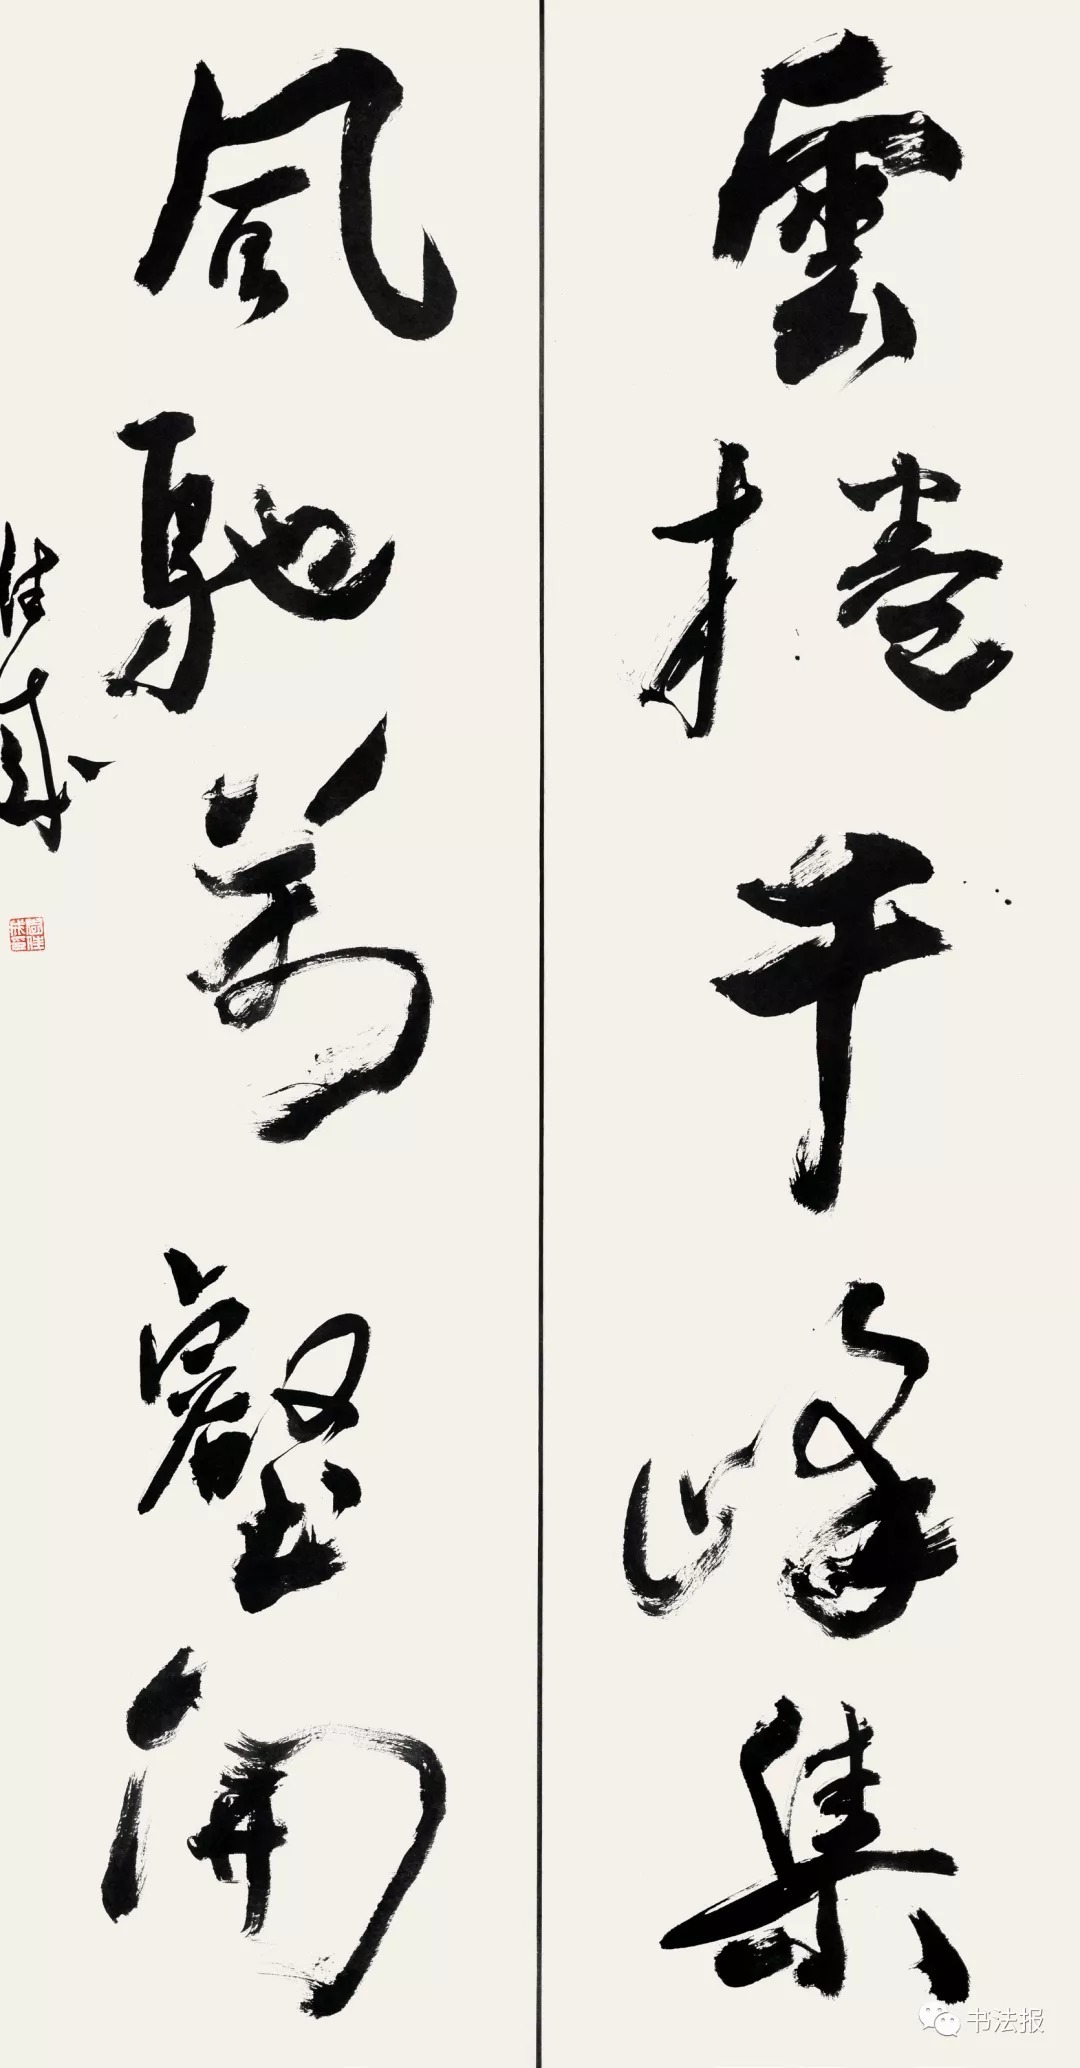 雲捲千峰集
風馳萬壑開
佳成
书法报